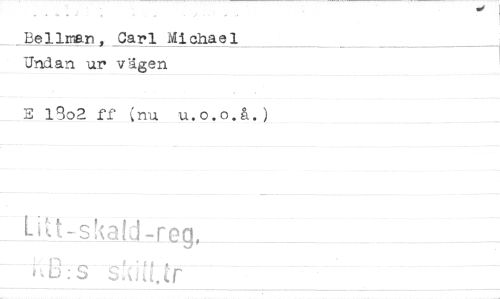 Bellman, Carl Michael
Undan ur vägen
E 18o2 ff (nu u.o.o.å.)
Litt-skald-reg.
KB:s skill.tr